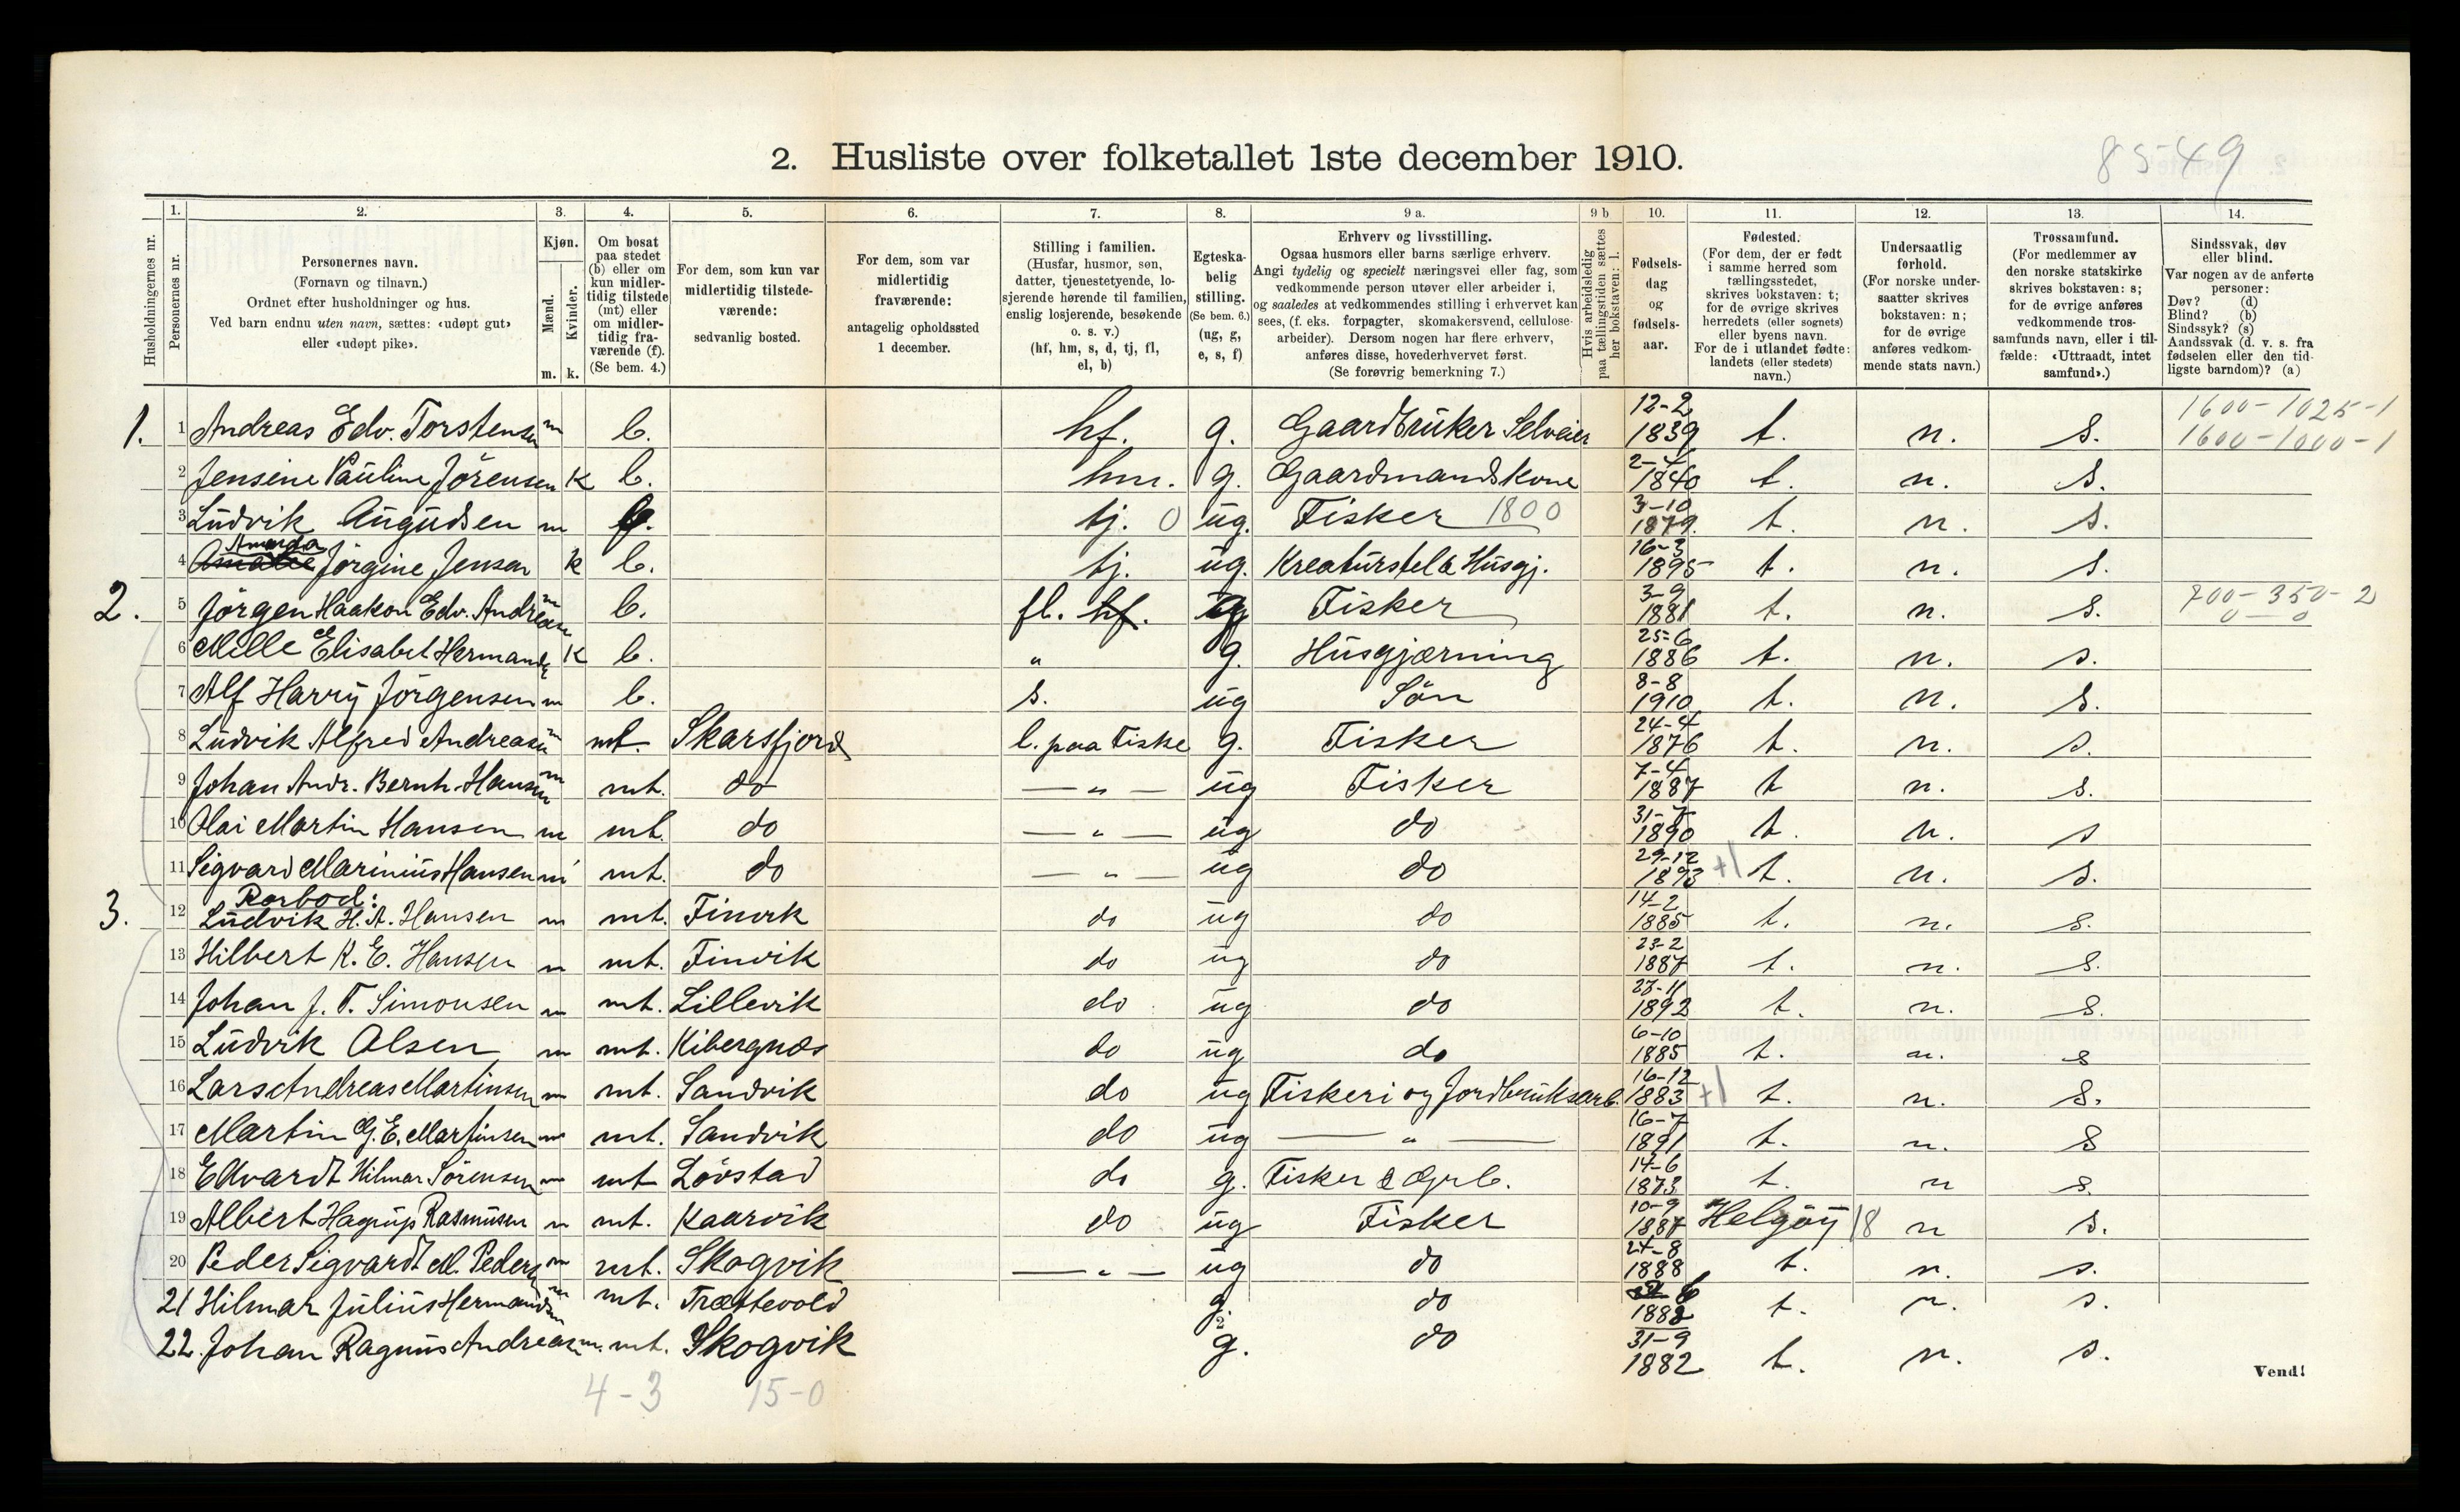 2. Husliste over folketallet 1ste december 1910.
8549
1. 2. 3. 4. 5. 6. 7. 8. 9 a. 9 b 10. 11. 12. 13. 14.
Husholdningernes nr.
Personernes nr.
Personernes navn.
(Fornavn og tilnavn.)
Ordnet efter husholdninger og hus.
Ved barn endnu uten navn, sættes: «udøpt gut»
eller «udøpt pike».
Kjøn.
Mænd.
Kvinder.
m. k.
Om bosat
paa stedet
(b) eller om
kun midler-
tidig tilstede
(mt) eller
om midler-
tidig fra-
værende (f).
(Se bem. 4.)
For dem, som kun var
midlertidig tilstede-
værende:
sedvanlig bosted.
For dem, som var
midlertidig
fraværende:
antagelig opholdssted
1 december.
Stilling i familien.
(Husfar, husmor, søn,
datter, tjenestetyende, lo-
sjerende hørende til familien,
enslig losjerende, besøkende
o. s. v.)
(hf, hm, s, d, tj, fl,
el, b)
Egteska-
belig
stilling.
(Se bem. 6.)
(ug, g,
e, s, f)
Erhverv og livsstilling.
Ogsaa husmors eller barns særlige erhverv.
Angi tydelig og specielt næringsvei eller fag, som
vedkommende person utøver eller arbeider i,
og saaledes at vedkommendes stilling i erhvervet kan
sees, (f. eks. forpagter, skomakersvend, cellulose-
arbeider). Dersom nogen har flere erhverv,
anføres disse, hovederhvervet først.
(Se forøvrig bemerkning 7.)
Hvis arbeidsledig
paa tællingstiden sættes
her bokstaven: l.
Fødsels-
dag
og
fødsels-
aar.
Fødested.
(For dem, der er født
i samme herred som
tællingsstedet,
skrives bokstaven: t;
for de øvrige skrives
herredets (eller sognets)
eller byens navn.
For de i utlandet fødte:
landets (eller stedets)
navn.)
Undersaatlig
forhold.
(For norske under-
saatter skrives
bokstaven: n;
for de øvrige
anføres vedkom-
mende stats navn.)
Trossamfund.
(For medlemmer av
den norske statskirke
skrives bokstaven: s;
for de øvrige anføres
vedkommende tros-
samfunds navn, eller i til-
fælde: «Uttraadt, intet
samfund».)
Sindssvak, døv
eller blind.
Var nogen av de anførte
personer:
Døv? (d)
Blind? (b)
Sindssyk? (s)
Aandssvak (d. v. s. fra
fødselen eller den tid-
ligste barndom)? (a)
1. 1 Andreas Edv. Torstensen m b. hf. g. Gaardbruker Selveier 12-2 1839 t. n. s. 1600-1025-1
1600-1000-1
2 Jensine Pauline Jörensen k b. hm. g. Gaardmandskone 2-4 1840 t. n. s.
3 Ludvik Augudsen m tj. 0 ug. Fisker 1800 3-10 1879. t. n. s.
Amanda
4 Amalie Jörgine Jensen k b. tj. ug. Kreaturstel & Husgj. 16-3 1895 t. n. s.
2. 5 Jörgen Haakon Edv. Andreasen m b. fl. hf. Fisker 3-9 1881 t. n. s. 700-350-2
0 — 0
6 Mille Elisabet Hermands k b. " g. Husgjærning 25-6 1886 t. n. s.
7 Alf Harry Jörgensen m b. s. ug Sön 8-8 1910 t. n. s.
8 Ludvik Alfred Andreasen m mt Skarsfjord b. paa Fiske g. Fisker 24-4 1876 t. n. s.
9 Johan Andr. Bernh. Hansen m mt. do — " — ug Fisker 7-4 1887 t n. s.
10 Olai Martin Hansen m mt. do — " — ug do 31-7 1890 t. n. s
11 Sigvard Marinius Hansen m mt. do — " — ug do 29-12 1893 +1 t. n. s.
Rorbod:
3. 12 Ludvik H. A. Hansen m mt. Finvik do ug do 14-2 1885 t. n. s.
13 Hilbert K. E. Hansen m mt. Finvik do ug do 23-2 1887 t. n. s.
14 Johan J. T. Simonsen m mt. Lillevik do ug do 27-11 1892 t. n. s.
15 Ludvik Olsen m mt. Kibergnæs do ug do 6-10 1885 t. n. s
16 Lars Andreas Martinsen m mt. Sandvik do ug Fiskeri og Jordbruksarb. 16-12 1883 +1 t. n. s.
17 Martin G. E. Martinsen m mt. Sandvik do ug — " — 16-7 1891 t. n. s
18 Edvardt Hilmar Sörensen m mt Lövstad do g. Fisker & Grb. 14-6 1873 t. n s.
19 Albert Hagrup Rasmusen m mt. Kaarvik do ug Fisker 10-9 1887 Helgöy 18 n s.
20 Peder Sigvardt M. Peders m mt. Skogvik — " — ug do 24-8 1888 t. n. s.
21 Hilmar Julius Hermands m mt. Trættevold g. do 6 1882 t. n. s.
22. Johan Ragnus Andreasen m. mt. Skogvik g. do 31-9 1882 t. n. s.
4-3 15-0
Vend!